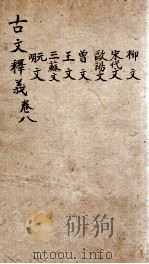 柳文
宋代文
歐陽文
曾文
王文
三蘇文
明元文
古文釋義卷八
mtoou.info